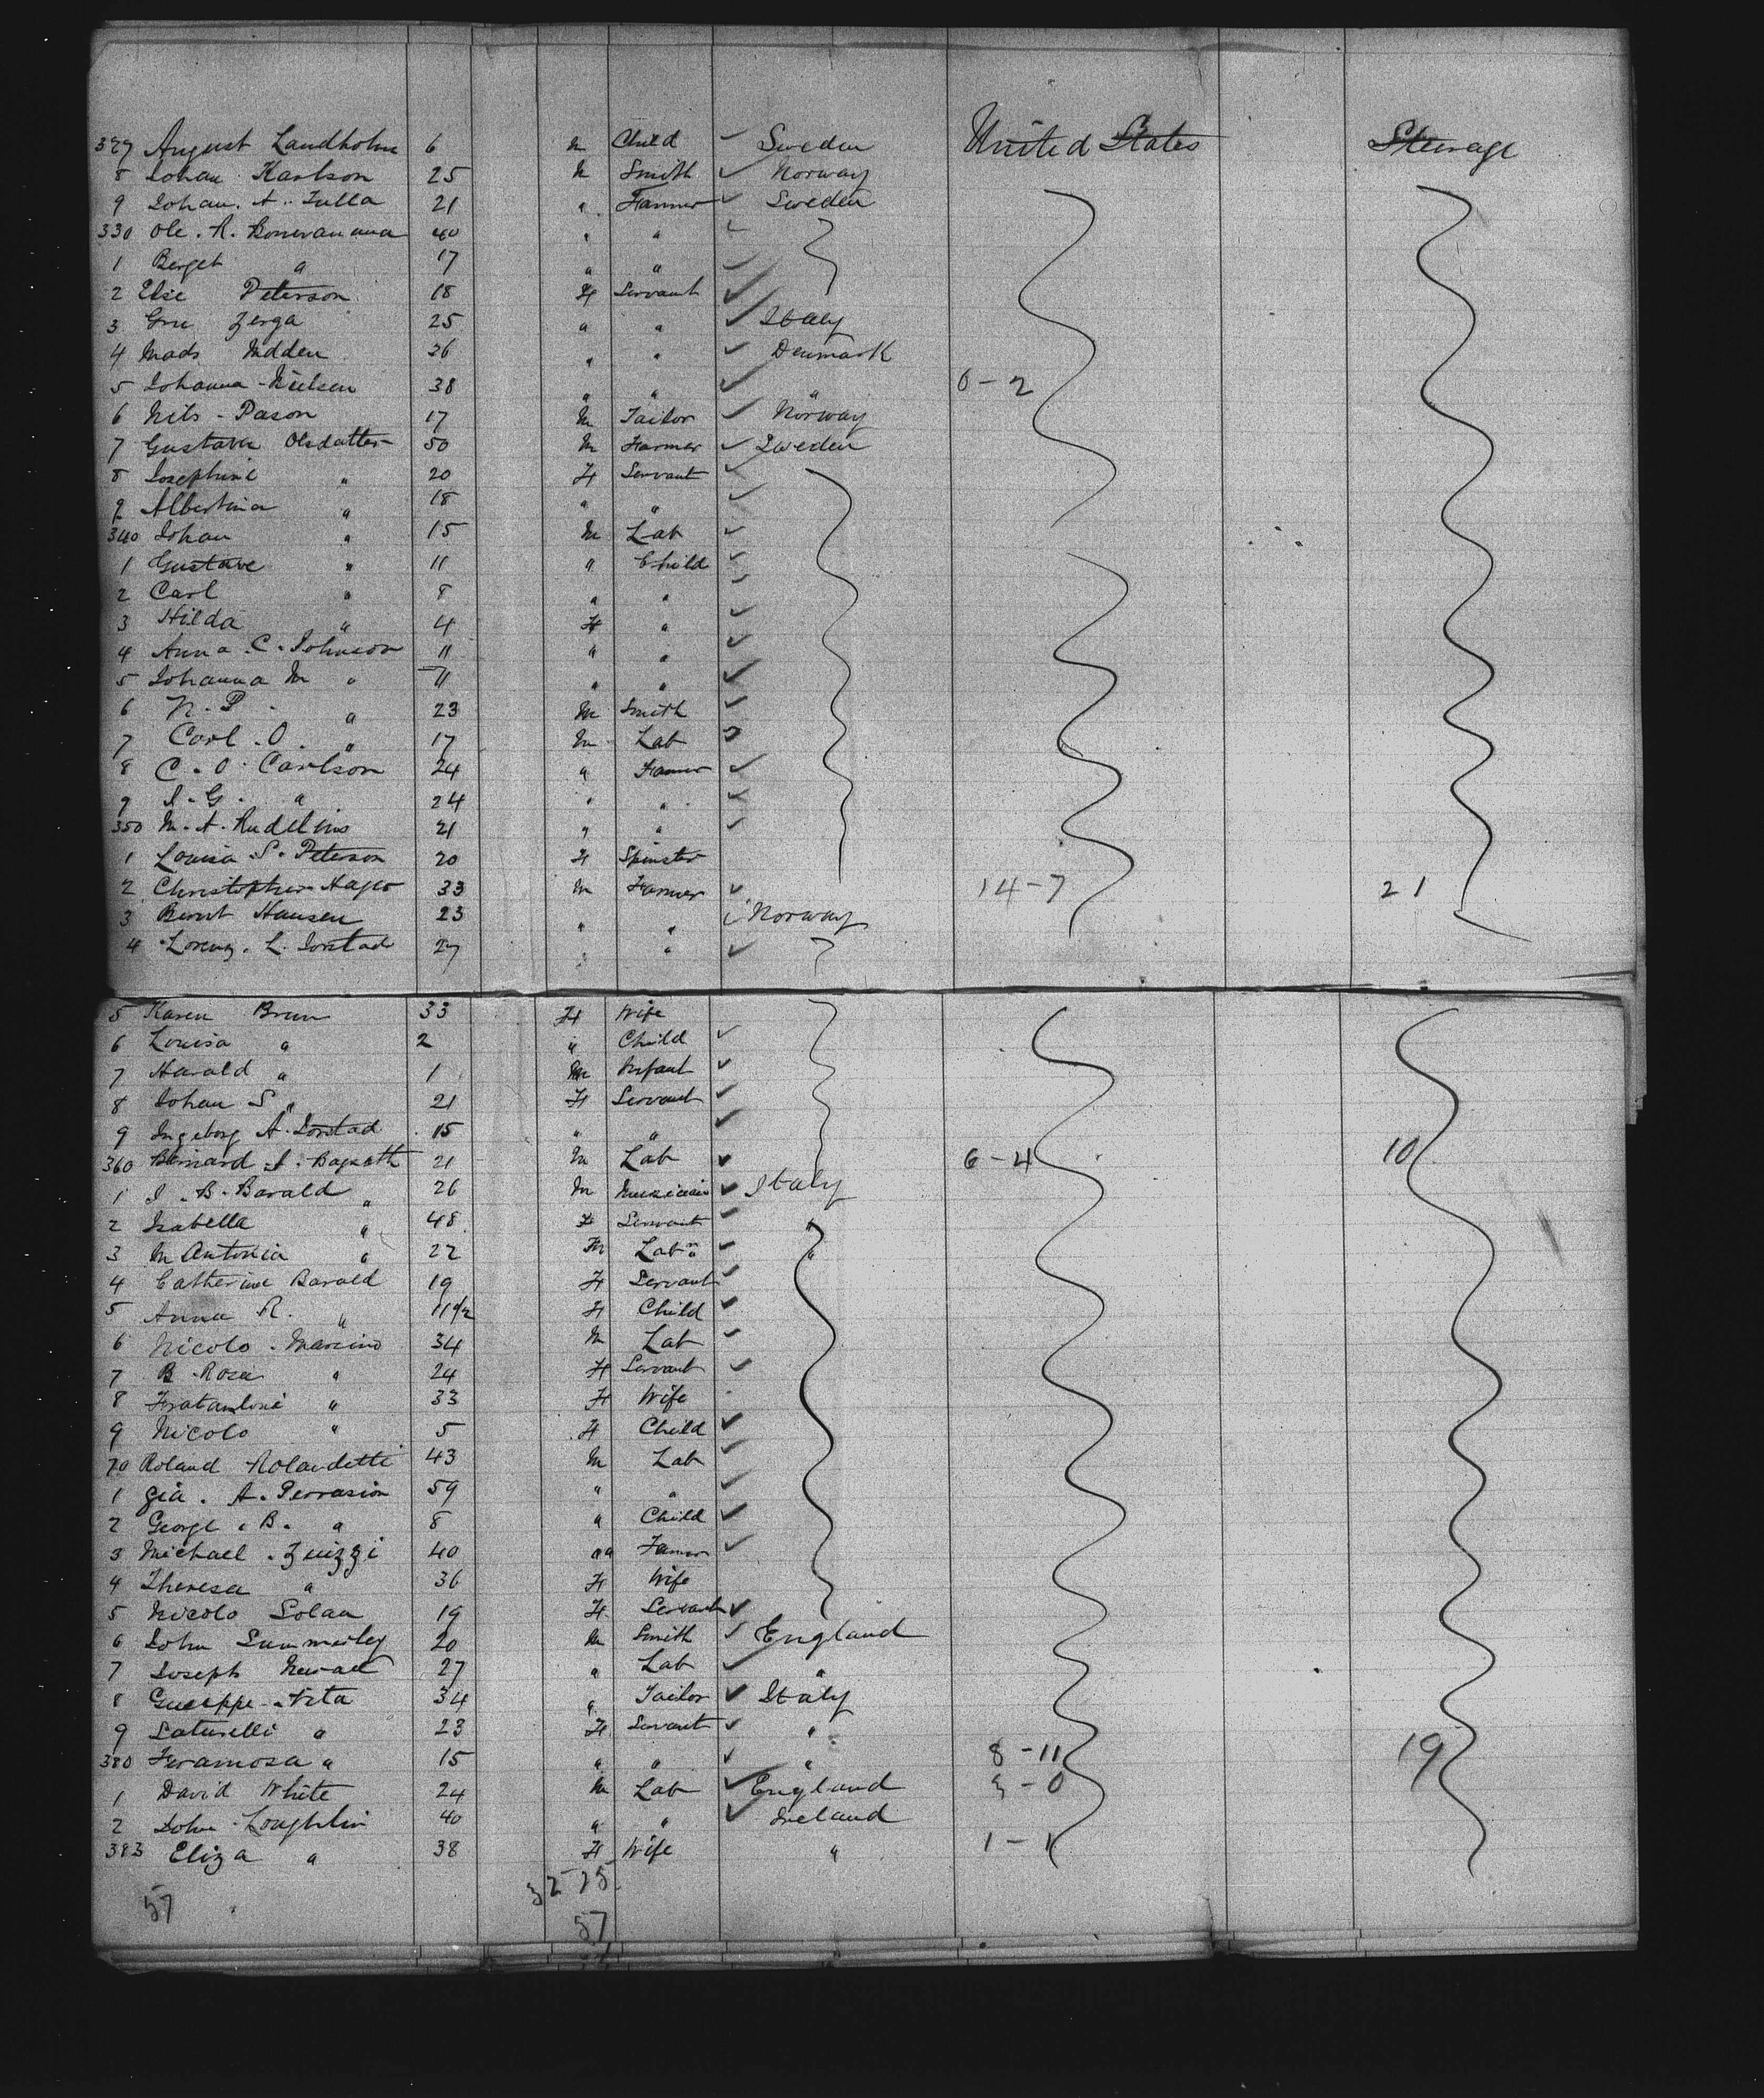 327 August Landholm 6 m Child ✓ Sweden United States Steerage
8 Johan Karlson 25 m Smith ✓ Norway
9 Johan. A. Tulla 21 " Farmer ✓ Sweden
330 Ole. R. 40 " " ✓
1 Berget " 17 " " ✓
2 Else Peterson 18 F Servant ✓
3 Gru Zerga 25 " " ✓ Italy
4 Mads 36 " " ✓ Denmark
5 Johanna Nielsen 38 " " ✓ " 0-2
6 Nils - Pason 17 m Tailor ✓ Norway
7 Gustava Olsdatter 50 m Farmer ✓ Sweden
8 Josephine " 20 F Servant ✓
9 Albertina " 18 " " ✓
340 Johan " 15 m Lab ✓
1 Gustave " 11 " Child ✓
2 Carl " 8 " " ✓
3 Hilda " 4 F " ✓
4 Anna. C. Johnson 11 " " ✓
5 Johanna M " 11 " " ✓
6 N. P. " 23 m Smith ✓
7 Carl. O. " 17 m Lab
8 C. O. Carlson 24 " Farmer ✓
9 J. G. " 24 " " ✓
350 M. A. Rudelius 21 " " ✓
1 Louisa S. Peterson 20 F Spinster
2 Christopher 33 m Farmer ✓ 14-7 21
3 Bernt Hansen 23 " " Norway
4 Lorenz. L. Jorstad 27 " " ✓
5 Karen Brun 33 F Wife
6 Louisa " 2 " Child ✓
7 Harald " 1 m Infant ✓
8 Johan S. " 21 F Servant ✓
9 Ingeborg A. Jorstad 15 " " ✓
360 Bernard A. 21 m Lab ✓ 6-4 10
1 J. B. Barald " 26 m Musician ✓ Italy
2 Isabella " 48 F Servant ✓ "
3 M Antonia " 22 m Lab ✓ "
4 Catherine Barald 19 F Servant ✓
5 Anna R. " 11 1/2 F Child ✓
6 Nicolo. Marcino 34 m Lab ✓
7 B. Rosa " 24 F Servant ✓
8 " 33 F Wife
9 Nicolo " 5 F Child ✓
70 Roland Rolandetti 43 m Lab ✓
1 Gia. A. Perrasion 59 " " ✓
2 George. B. " 8 " Child ✓
3 Michael. Zuizzi 40 " Farmer ✓
4 Theresa " 36 F Wife
5 Nicolo Solan 19 F Servant ✓
6 John 20 m Smith ✓ England
7 Joseph 27 " Lab ✓ "
8 Gueseppe Vita 34 " Tailor ✓ Italy
9 Saturelli " 23 F Servant ✓ "
380 Framosa " 15 " " ✓ " 8-11 19
1 David White 24 m Lab ✓ England 3-0
2 John Loughlin 40 " " ✓ Ireland
383 Eliza " 38 F Wife " 1-1
32 25
57 57